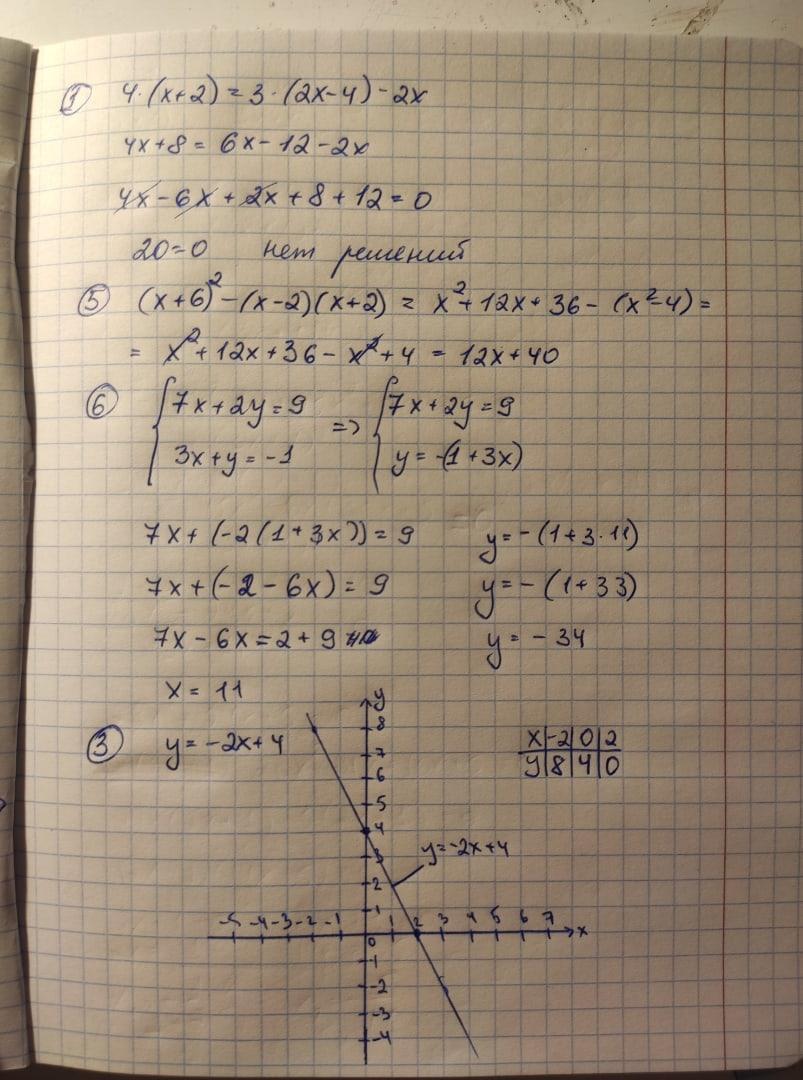 ① 4·(x+2) = 3·(2x-4) - 2x
4x+8 = 6x - 12 - 2x
4x - 6x + 2x + 8 + 12 = 0
20=0 нет решений
⑤ (x+6)² - (x-2)(x+2) = x² + 12x + 36 - (x²-4) =
= x² + 12x + 36 - x² + 4 = 12x + 40
⑥ { 7x + 2y = 9 => { 7x + 2y = 9
3x + y = -1 y = -(1 + 3x)
7x + (-2(1 + 3x)) = 9 y = -(1 + 3·11)
7x + (-2 - 6x) = 9 y = -(1 + 33)
7x - 6x = 2 + 9 y = -34
x = 11
③ y = -2x + 4
x -2 0 2
y 8 4 0
y
8
7
6
5
4
3
2
1
y = -2x+4
-5 -4 -3 -2 -1 1 2 3 4 5 6 7 x
0
-1
-2
-3
-4